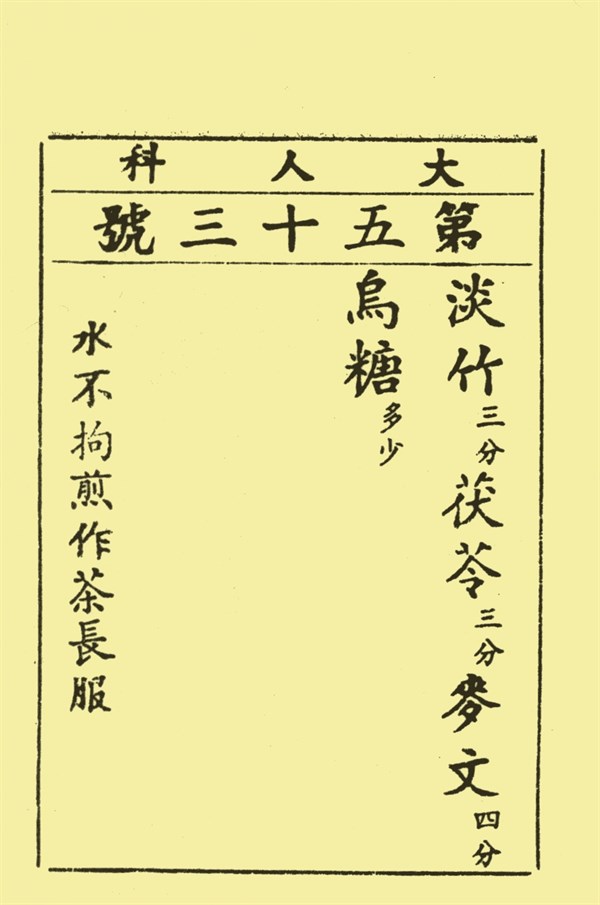 大人科
第五十三號
淡竹三分茯苓三分麥文四分
烏糖多少
水不拘煎作茶長服